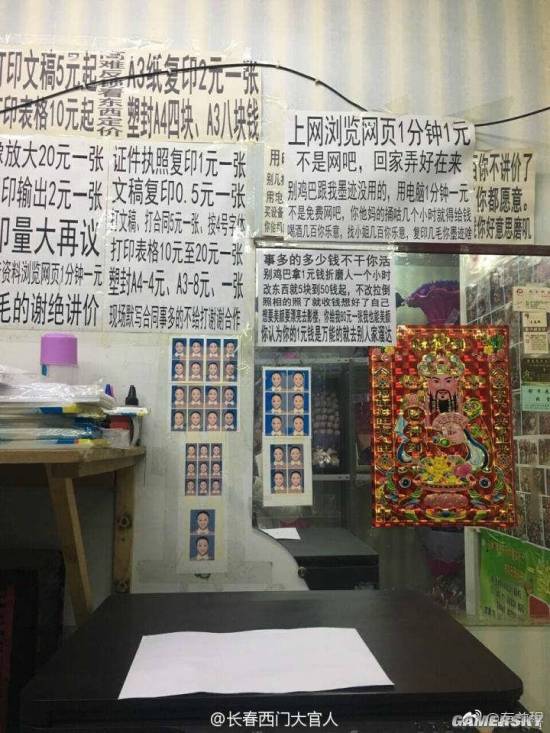 打印文稿5元起
印表格10元起
A3纸复印2元一张
塑封A4四块、A3八块钱
放大20元一张
印输出2元一张
印量大再议
资料浏览网页1分钟一元
毛的谢绝讲价
证件执照复印1元一张
文稿复印0.5元一张
打文稿、打合同5元一张、按4号字体
打印表格10元至20元一张
塑封A4-4元、A3-8元、一张
现场默写合同事多的不给打谢谢合作
上网浏览网页1分钟1元
不是网吧,回家弄好在来
别鸡巴跟我墨迹没用的,用电脑1分钟一元
不是免费网吧,你他妈的捅咕几个小时就得给钱
喝酒几百你乐意,找小姐几百你乐意,复印几毛你墨迹
你不讲价了
你都愿意。
你好意思磨叽
事多的多少钱不干你活
别鸡巴拿1元钱折磨人一个小时
改东西就5块到50钱起,不改拉倒
照相的照了就收钱想好了自己
想要美颜要漂亮去影楼,你给我80元一张我也能美颜
你认为你的1元钱是万能的就去别人家溜达
@长春西门大官人
GAMERSKY